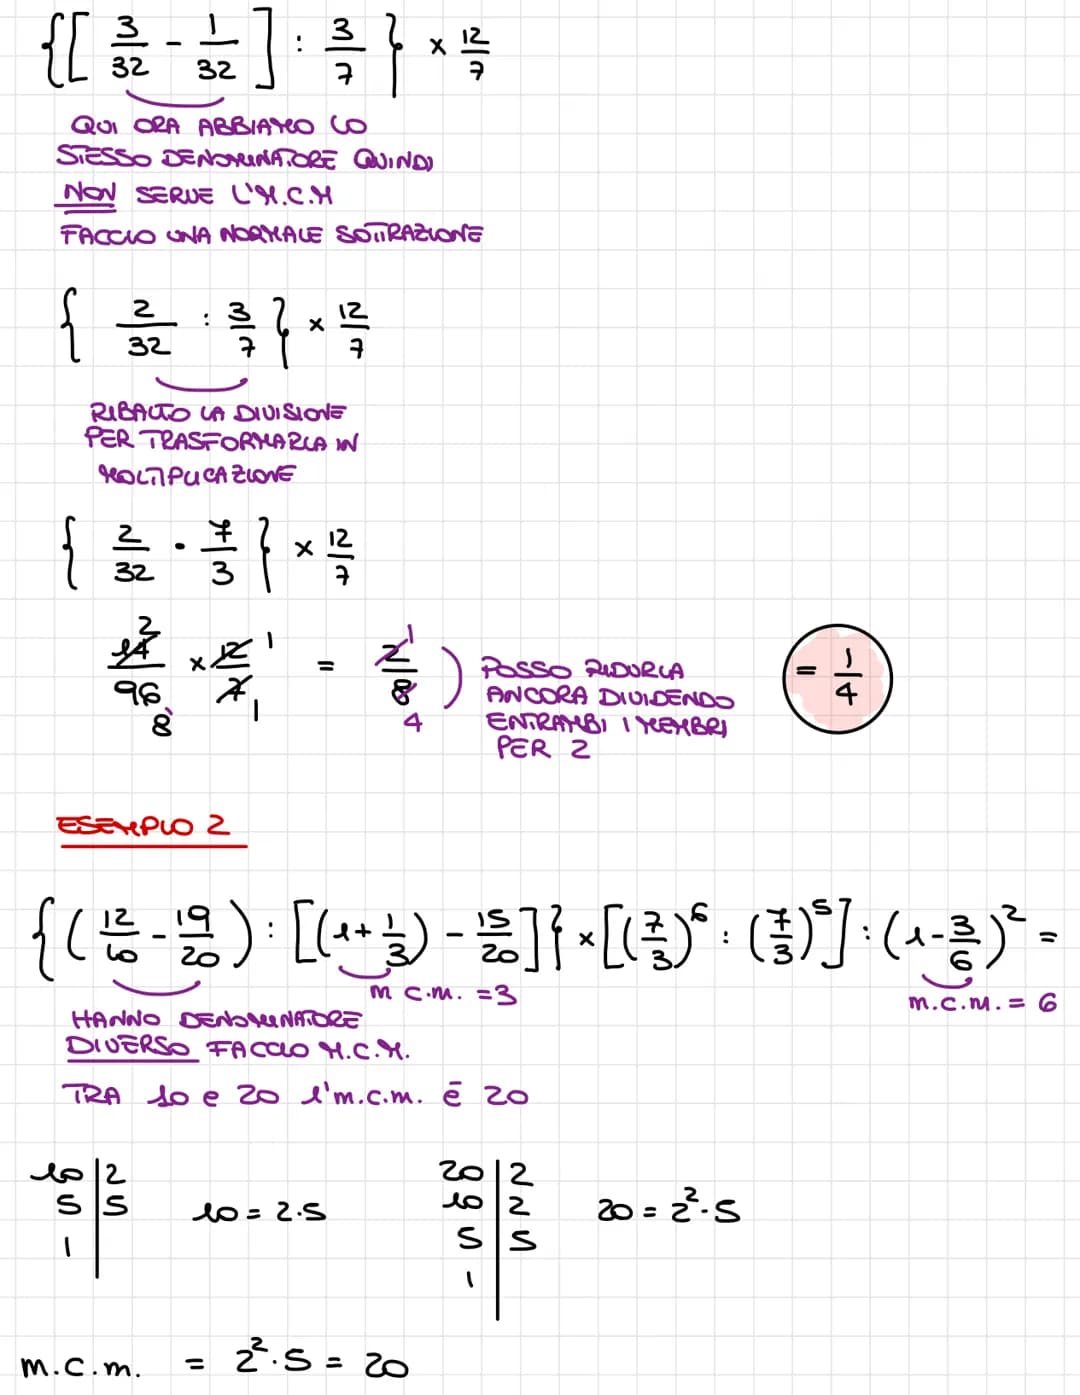 {[ 3/32 - 1/32 ] : 3/7 } × 12/7
QUI ORA ABBIAMO LO
STESSO DENOMINATORE QUINDI
NON SERVE L'M.C.M
FACCIO UNA NORMALE SOTTRAZIONE
{ 2/32 : 3/7 } × 12/7
RIBALTO LA DIVISIONE
PER TRASFORMARLA IN
MOLTIPLICAZIONE
{ 2/32 · 7/3 } × 12/7
14/96 × 12/7 = 2/8 ) = 1/4
2 8 1 1 1 4
POSSO RIDURLA
ANCORA DIVIDENDO
ENTRAMBI I MEMBRI
PER 2
ESEMPIO 2
{( 12/10 - 19/20 ) : [(1 + 1/3) - 15/20 ]} × [(7/3)⁶ : (7/3)⁵] : (1 - 3/6)² =
m c.m. = 3
m.c.m. = 6
HANNO DENOMINATORE
DIVERSO FACCIO M.C.M.
TRA 10 e 20 l'm.c.m. ē 20
10 | 2
5 | 5
1
10 = 2·5
20 | 2
10 | 2
5 | 5
1
20 = 2²·5
m.c.m. = 2²·5 = 20